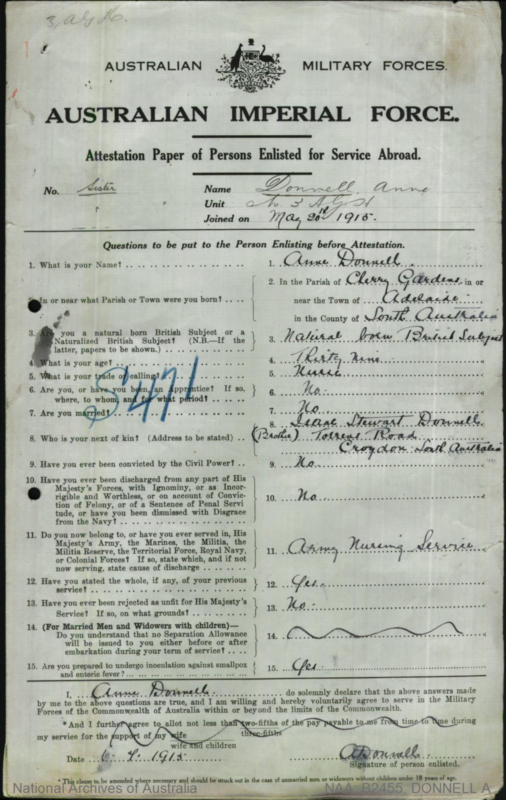 3. A.G.H.
AUSTRALIAN MILITARY FORCES.
AUSTRALIAN IMPERIAL FORCE.
Attestation Paper of Persons Enlisted for Service Abroad.
No. Sister Name Donnell Anne
Unit No 3 A.G.H
Joined on May 20th 1915.
Questions to be put to the Person Enlisting before Attestation.
1. What is your Name? 1. Anne Donnell.
2. In or near what Parish or Town were you born? 2. In the Parish of Cherry Gardens in or
near the Town of Adelaide
in the County of South Australia
3. Are you a natural born British Subject or a
Naturalized British Subject? (N.B.—If the
latter, papers to be shown.) 3. Natural born British Subject
4. What is your age? 4. Thirty nine
5. What is your trade or calling? 5. Nurse
6. Are you, or have you been, an Apprentice? If so,
where, to whom, and for what period? 6. No.
7. Are you married? 7. No
S471
8. Who is your next of kin? (Address to be stated) 8. Isaac Stewart Donnell
(Brother) Torrens Road
Croydon South Australia
9. Have you ever been convicted by the Civil Power? 9. No
10. Have you ever been discharged from any part of His
Majesty's Forces, with Ignominy, or as Incor-
rigible and Worthless, or on account of Convic-
tion of Felony, or of a Sentence of Penal Servi-
tude, or have you been Dismissed with Disgrace
from the Navy? 10. No
11. Do you now belong to, or have you ever served in, His
Majesty's Army, the Marines, the Militia, the
Militia Reserve, the Territorial Force, Royal Navy,
or Colonial Forces? If so, state which, and if not
now serving, state cause of discharge 11. Army Nursing Service
12. Have you stated the whole, if any, of your previous
service? 12. Yes.
13. Have you ever been rejected as unfit for His Majesty's
Service? If so, on what grounds? 13. No.
14. (For Married Men and Widowers with children)—
Do you understand that no Separation Allowance
will be issued to you either before or after
embarkation during your term of service? 14.
15. Are you prepared to undergo inoculation against smallpox
and enteric fever? 15. Yes
I, Anne Donnell do solemnly declare that the above answers made
by me to the above questions are true, and I am willing and hereby voluntarily agree to serve in the Military
Forces of the Commonwealth of Australia within or beyond the limits of the Commonwealth.
*And I further agree to allot not less than two-fifths of the pay payable to me from time to time during
three-fifths
my service for the support of my wife
wife and children
Date 1915 ADonnell
Signature of person enlisted.
*This clause to be amended where necessary and should be struck out in the case of unmarried men or widowers without children under 18 years of age.
National Archives of Australia NAA: B2455, DONNELL A